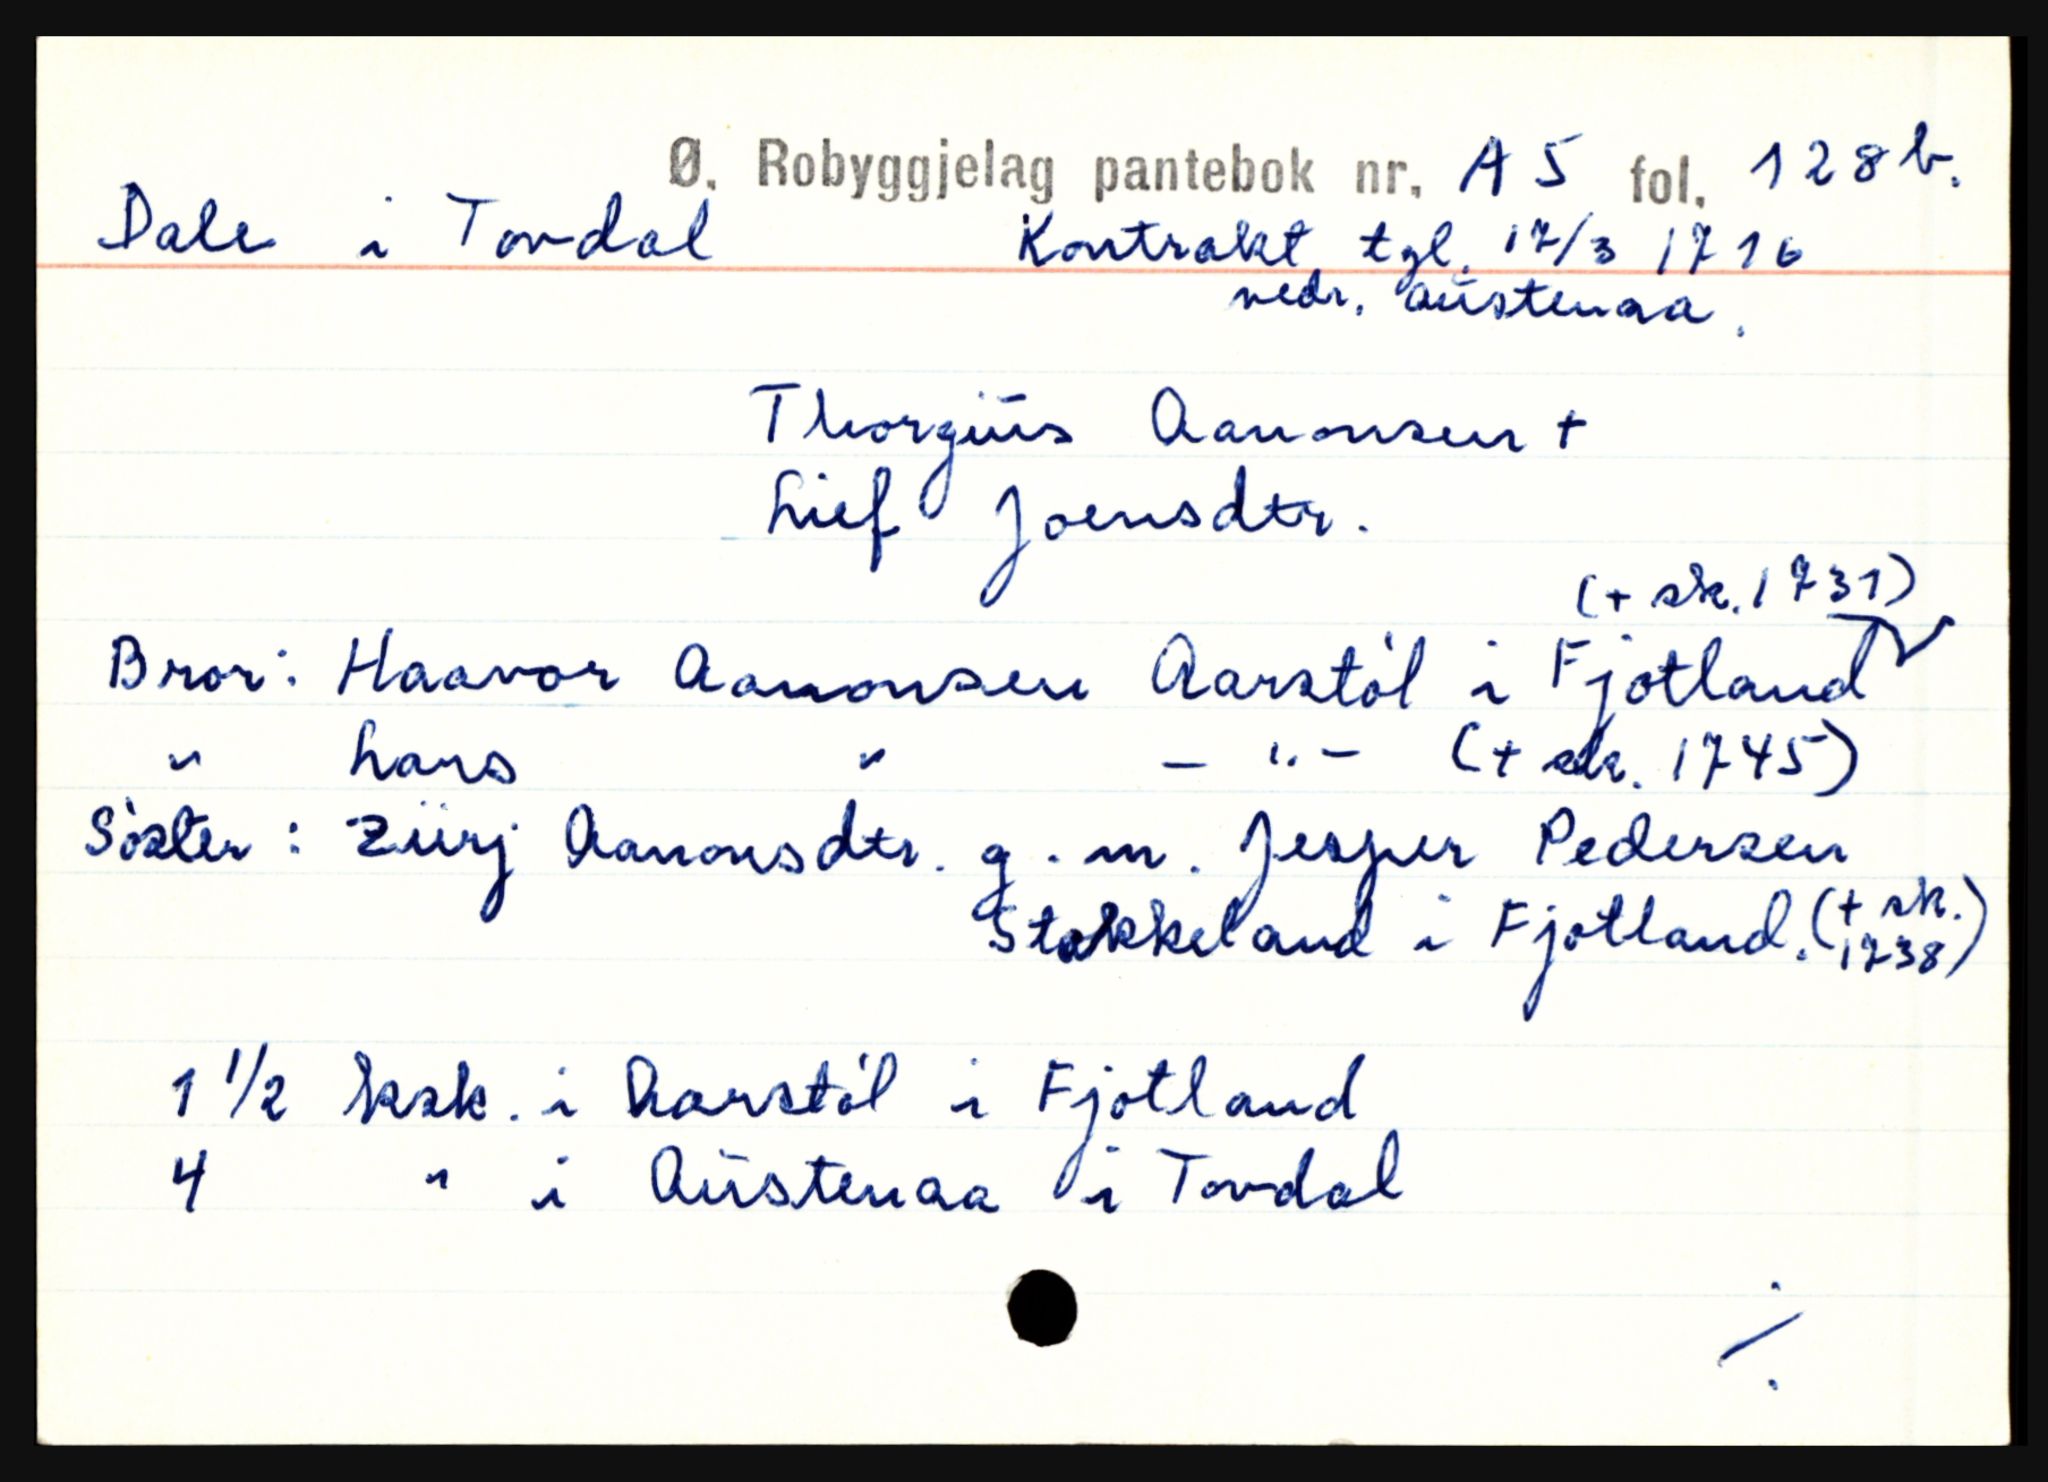 Ø. Robyggjelag pantebok nr. A 5 fol. 128 b.
Dale i Tovdal Kontrakt tgl. 17/3 1716
vedr. Austenaa.
Thorgüs Aanonsen +
Lief Joensdtr.
(+ sk. 1731)
Bror: Haavor Aanonsen Aarstøl i Fjotland
" Lars " - " - (+ sk. 1745)
Søster: Ziirj Aanonsdtr. g. m. Jesper Pedersen
Stakkeland i Fjotland. (+ sk. 1738)
1 1/2 ksk. i Aarstøl i Fjotland
4 " i Aüstenaa i Tovdal
./.